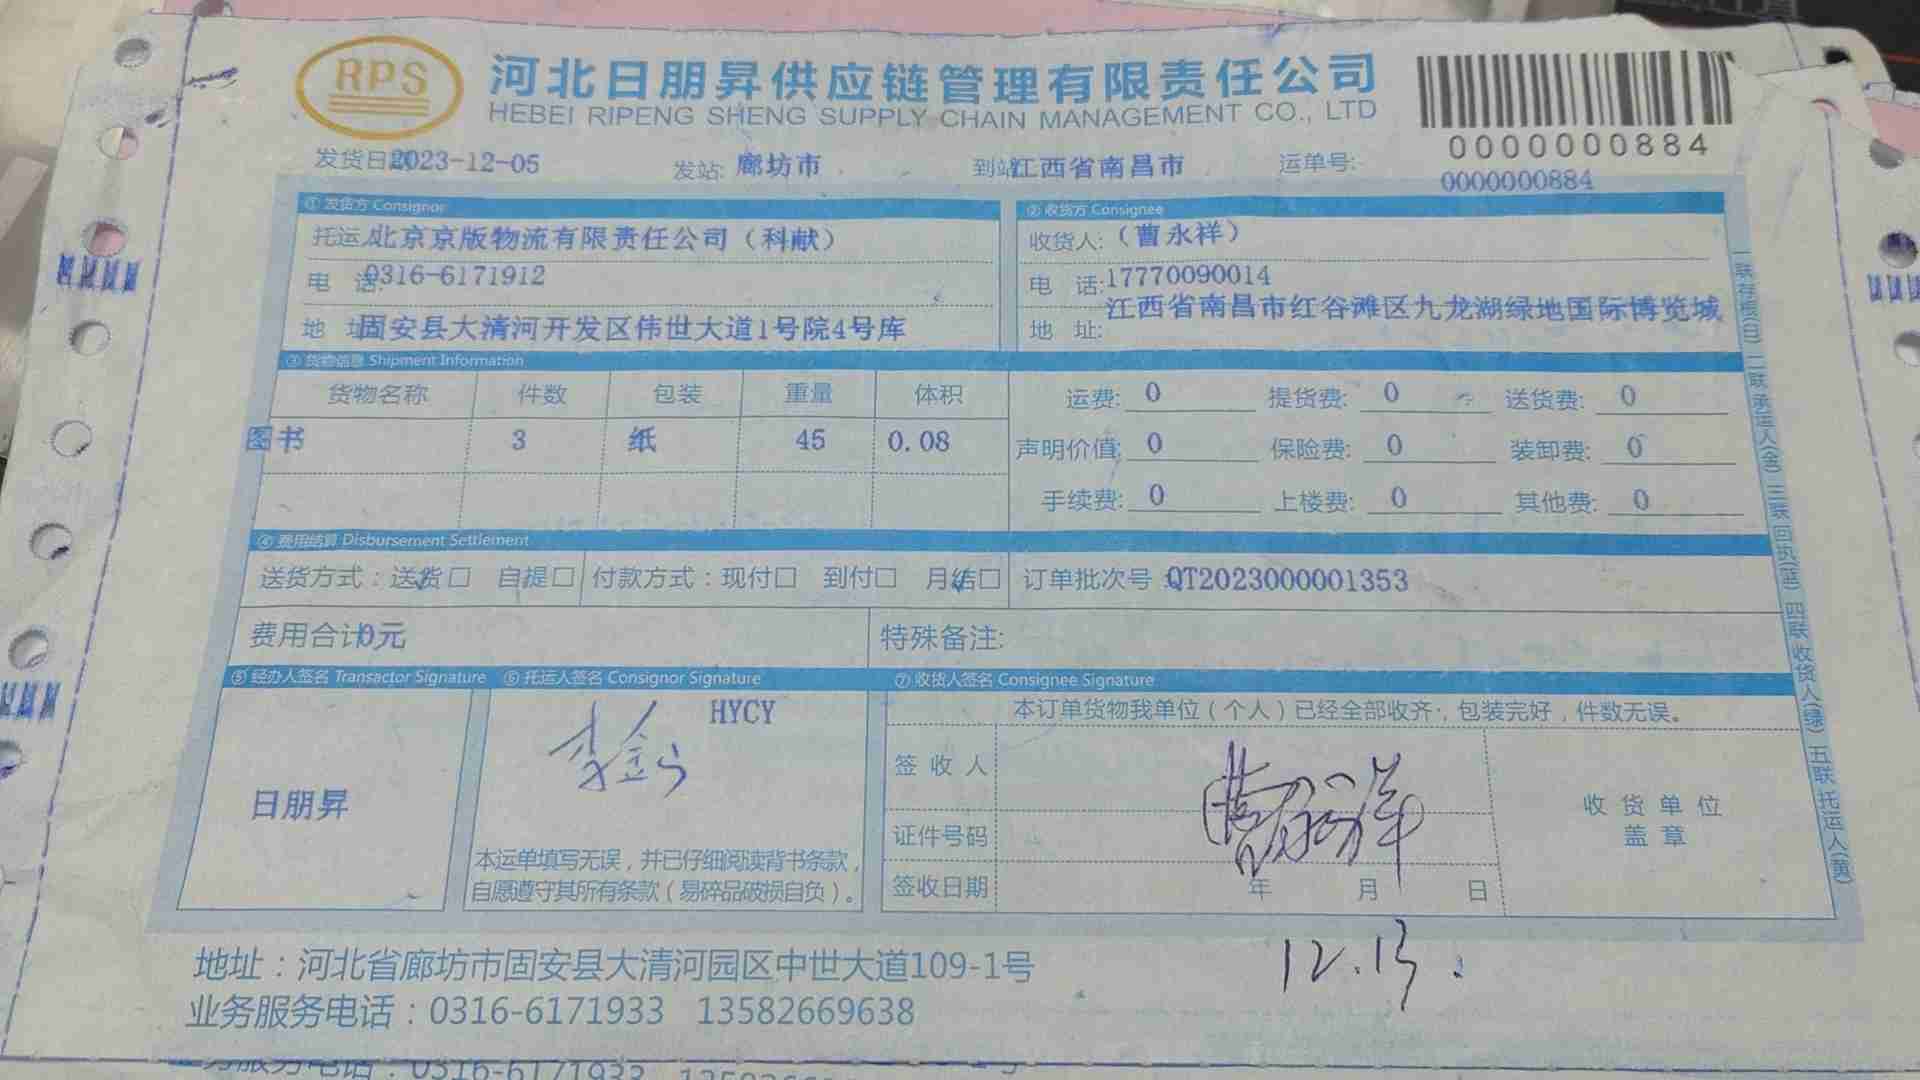 RPS
河北日朋昇供应链管理有限责任公司
HEBEI RIPENG SHENG SUPPLY CHAIN MANAGEMENT CO., LTD
0000000884
发货日 2023-12-05 发站: 廊坊市 到站 江西省南昌市 运单号: 0000000884
① 发货方 Consignor ② 收货方 Consignee
托运人 北京京版物流有限责任公司（科献） 收货人:（曹永祥）
电 话: 0316-6171912 电 话: 17770090014
地 址 固安县大清河开发区伟世大道1号院4号库 地 址: 江西省南昌市红谷滩区九龙湖绿地国际博览城
③ 货物信息 Shipment Information
货物名称 件数 包装 重量 体积 运费: 0 提货费: 0 送货费: 0
图书 3 纸 45 0.08 声明价值: 0 保险费: 0 装卸费: 0
手续费: 0 上楼费: 0 其他费: 0
④ 费用结算 Disbursement Settlement
送货方式：送货□ 自提□ 付款方式：现付□ 到付□ 月结□ 订单批次号 QT2023000001353
费用合计 0元 特殊备注:
⑤ 经办人签名 Transactor Signature ⑥ 托运人签名 Consignor Signature ⑦ 收货人签名 Consignee Signature
HYCY 本订单货物我单位（个人）已经全部收齐，包装完好，件数无误。
签 收 人
日朋昇 收 货 单 位
盖 章
证件号码
本运单填写无误，并已仔细阅读背书条款，
自愿遵守其所有条款（易碎品破损自负）。
签收日期 年 月 日
12.13
地址：河北省廊坊市固安县大清河园区中世大道109-1号
业务服务电话：0316-6171933 13582669638
一联存根(白) 二联承运人(金) 三联回执(蓝) 四联收货人(绿) 五联托运人(黄)